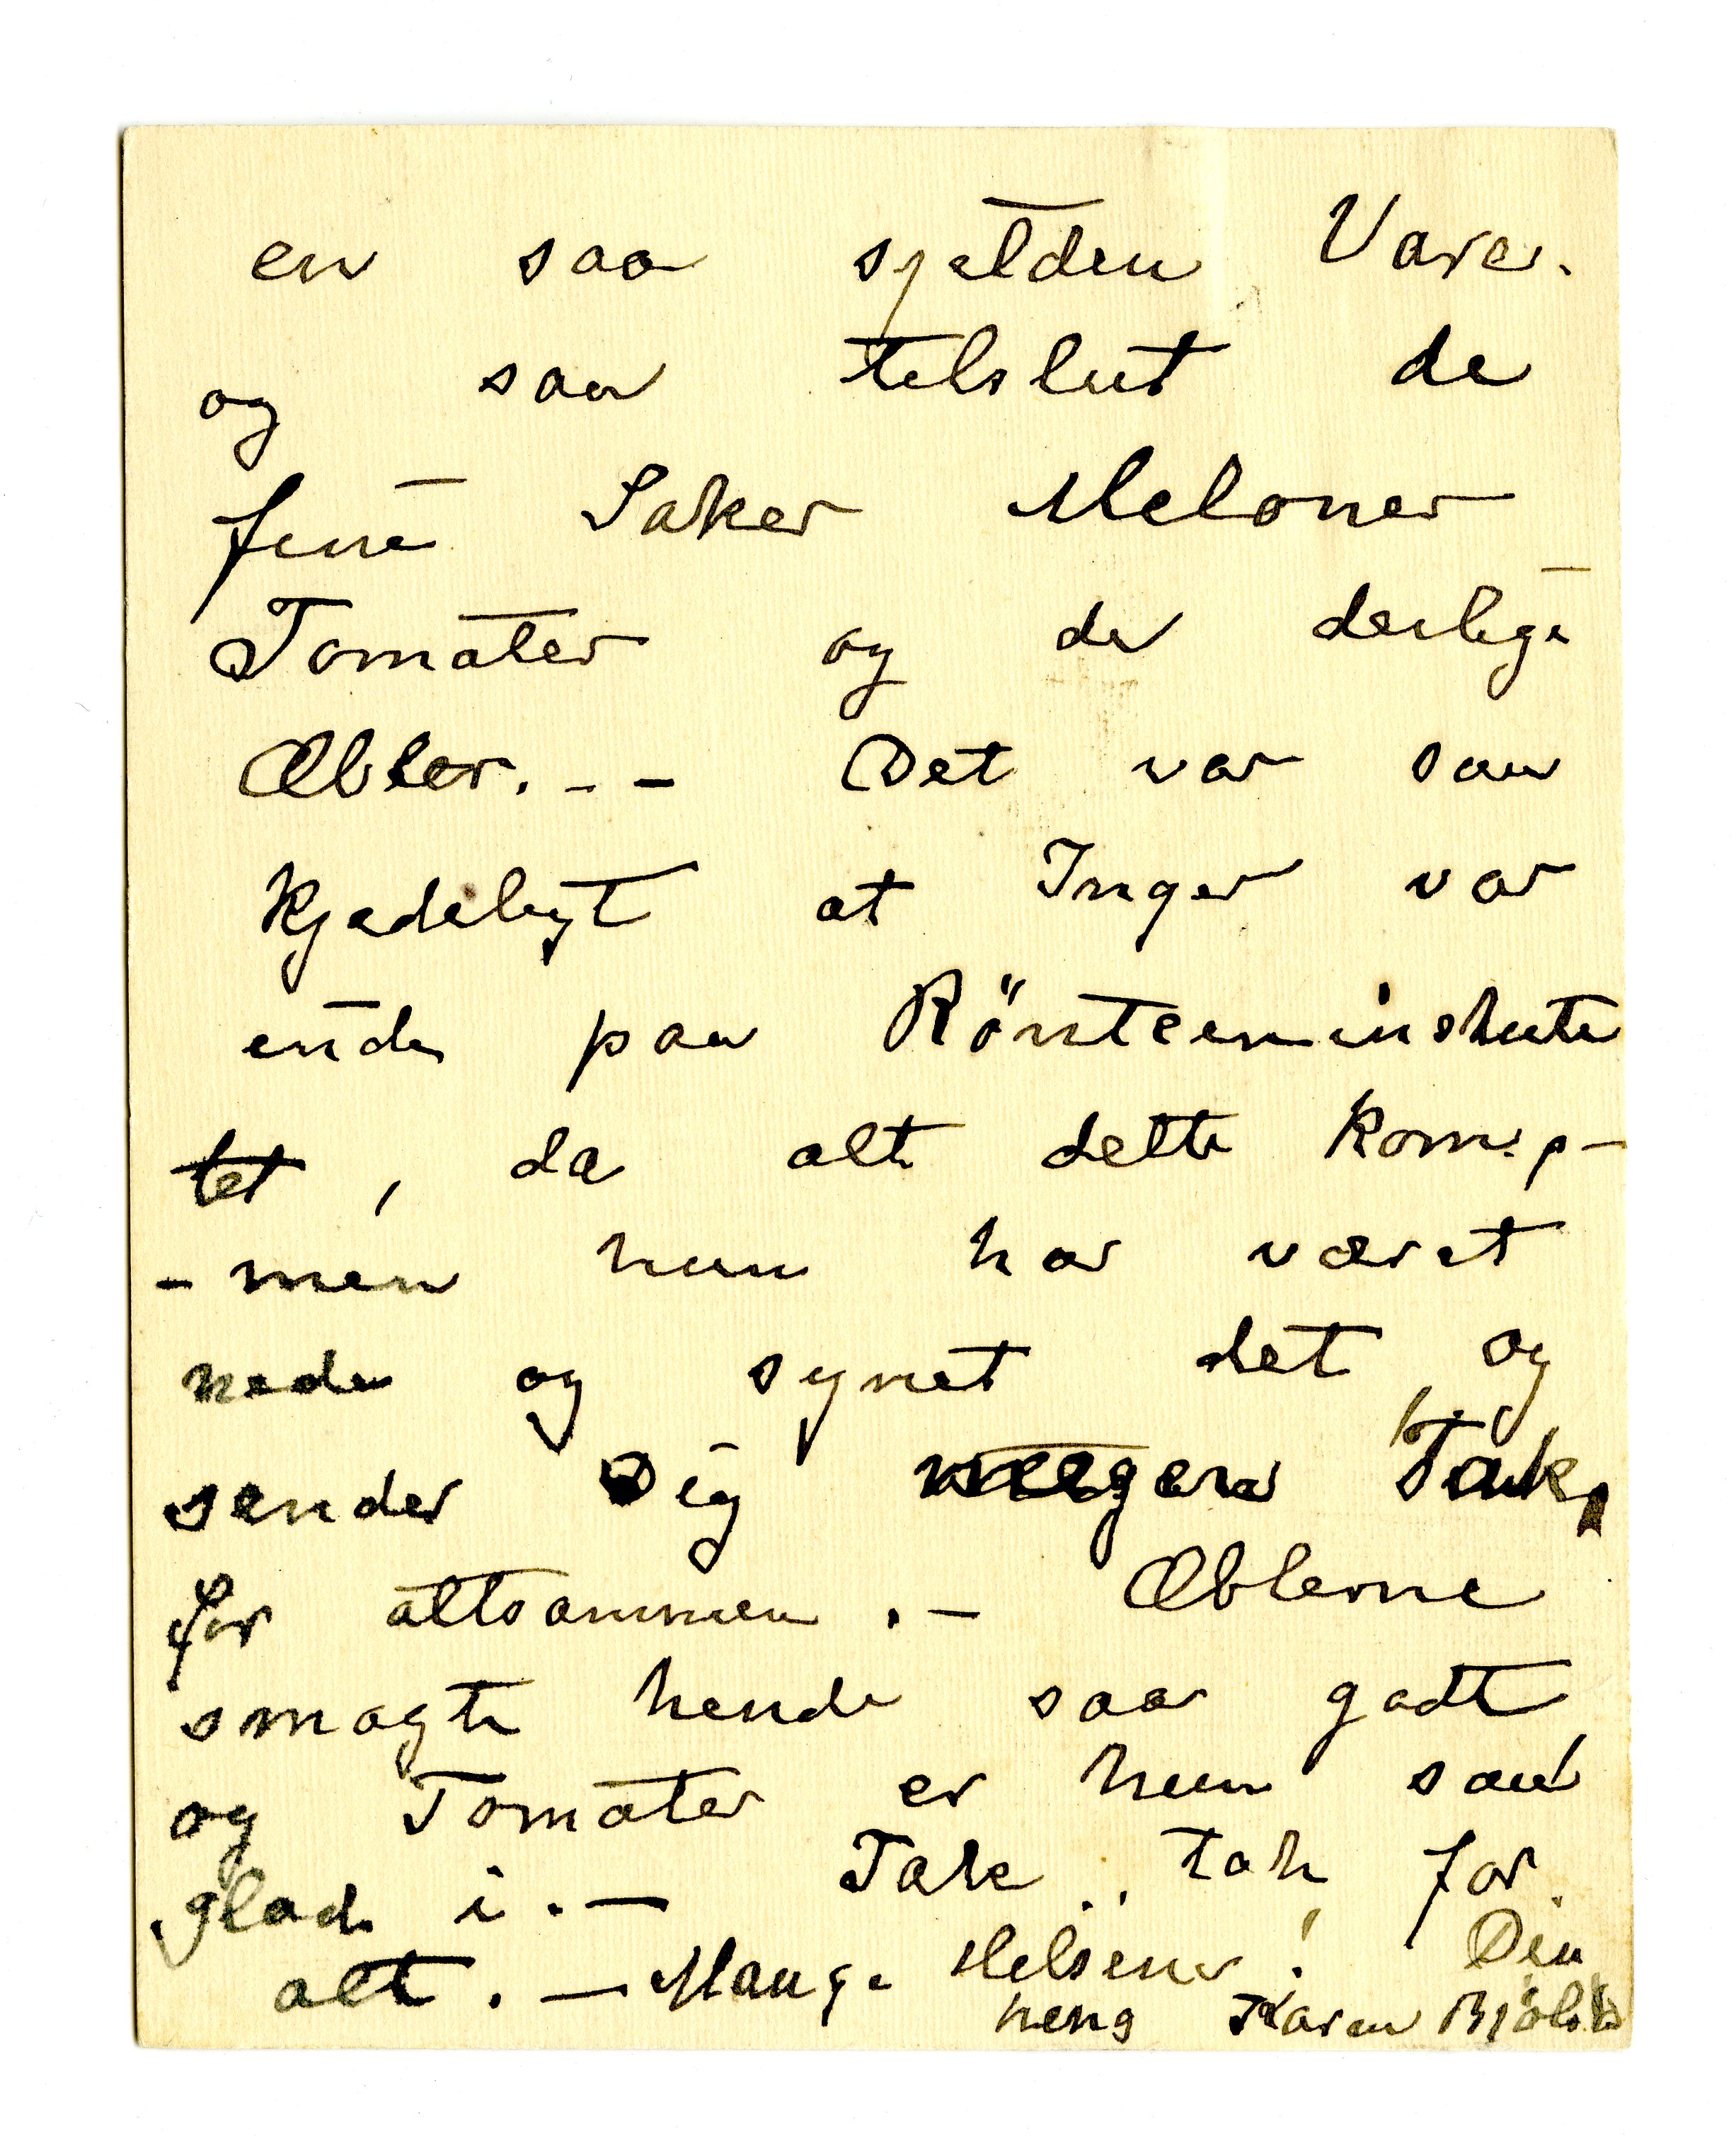 en saa sjelden Vare.
og saa tilslut de
fine Saker Meloner
Tomater og de deilige
Æbler. - -  Det var saa
kjedeligt at Inger var
ende paa Röntceninstitute
tet, da alt dette kom. -
- men hun har været
nede og synet det og
sender Dig megen Tak,
for altsammen. - Æblerne
smagte hende saa godt
og Tomater er hun saa
glad i. - Tak .. tak for
alt. - Mange Hilsener! Din
heng Karen Bjölstad